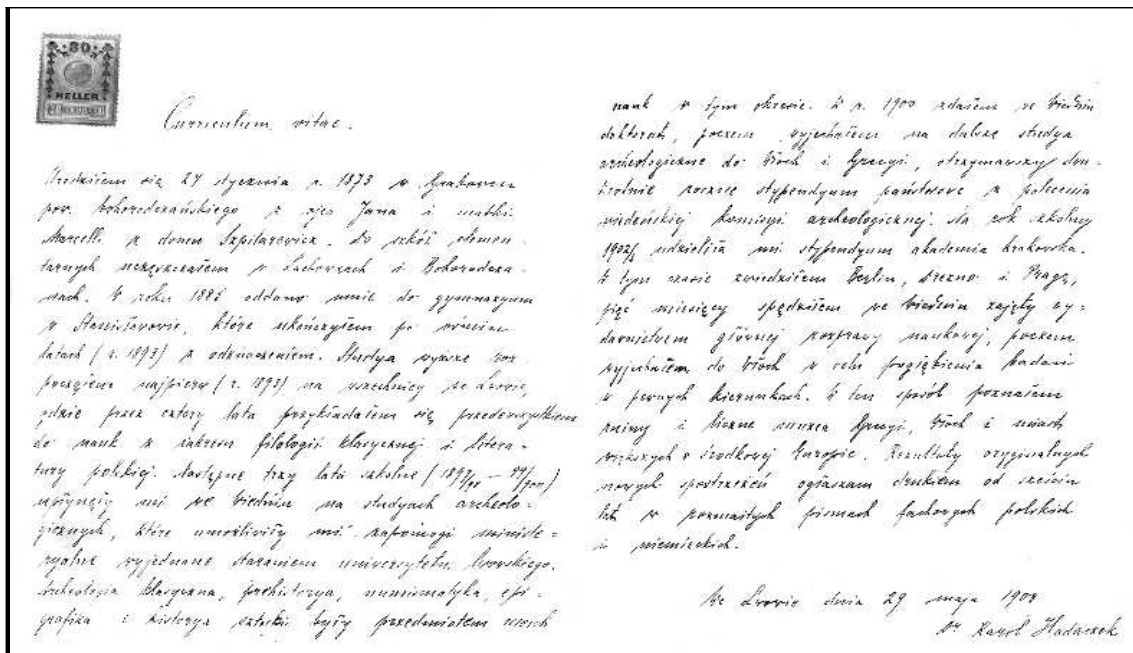 30
HELLER
Curriculum vitae.
Urodziłem się 24 stycznia r. 1873 w Grabowcu
pow. bohorodczańskiego, z ojca Jana i matki
Marcelli z domu Szpilarewicz. Do szkół elemen-
tarnych uczęszczałem w Łachowcach i Bohorodcza-
nach. W roku 1885 oddano mnie do gymnazyum
w Stanisławowie, które ukończyłem po ośmiu
latach (r. 1893) z odznaczeniem. Studya wyższe roz-
począłem najpierw (r. 1893) na wszechnicy we Lwowie,
gdzie przez cztery lata przykładałem się przedewszystkiem
do nauk z zakresu filologii klasycznej i litera-
tury polskiej. Następne trzy lata szkolne (1897/98 – 99/900)
upłynęły mi we Wiedniu na studyach archeolo-
gicznych, które umożliwiły mi zapomogi ministe-
ryalne wyjednane staraniem uniwersytetu lwowskiego.
Archeologia klasyczna, prehistorya, numizmatyka, epi-
grafika i historya sztuki były przedmiotem moich
nauk w tym okresie. W r. 1900 zdałem we Wiedniu
doktorat, poczem wyjechałem na dalsze studya
archeologiczne do Włoch i Grecyi, otrzymawszy dwu-
krotnie roczne stypendyum państwowe z polecenia
wiedeńskiej komisyi archeologicznej. Na rok szkolny
1902/3 udzieliła mi stypendyum akademia krakowska.
W tym czasie zwiedziłem Berlin, Drezno i Pragę,
pięć miesięcy spędziłem we Wiedniu zajęty wy-
dawnictwem głównej rozprawy naukowej, poczem
wyjechałem do Włoch w celu pogłębienia badań
w pewnych kierunkach. W ten sposób poznałem
ruiny i liczne muzea Grecyi, Włoch i miast
większych w środkowej Europie. Rezultaty oryginalnych
nowych spostrzeżeń ogłaszam drukiem od sześciu
lat w rozmaitych pismach fachowych polskich
i niemieckich.
We Lwowie dnia 29 maja 1903
Dr Karol Hadaczek